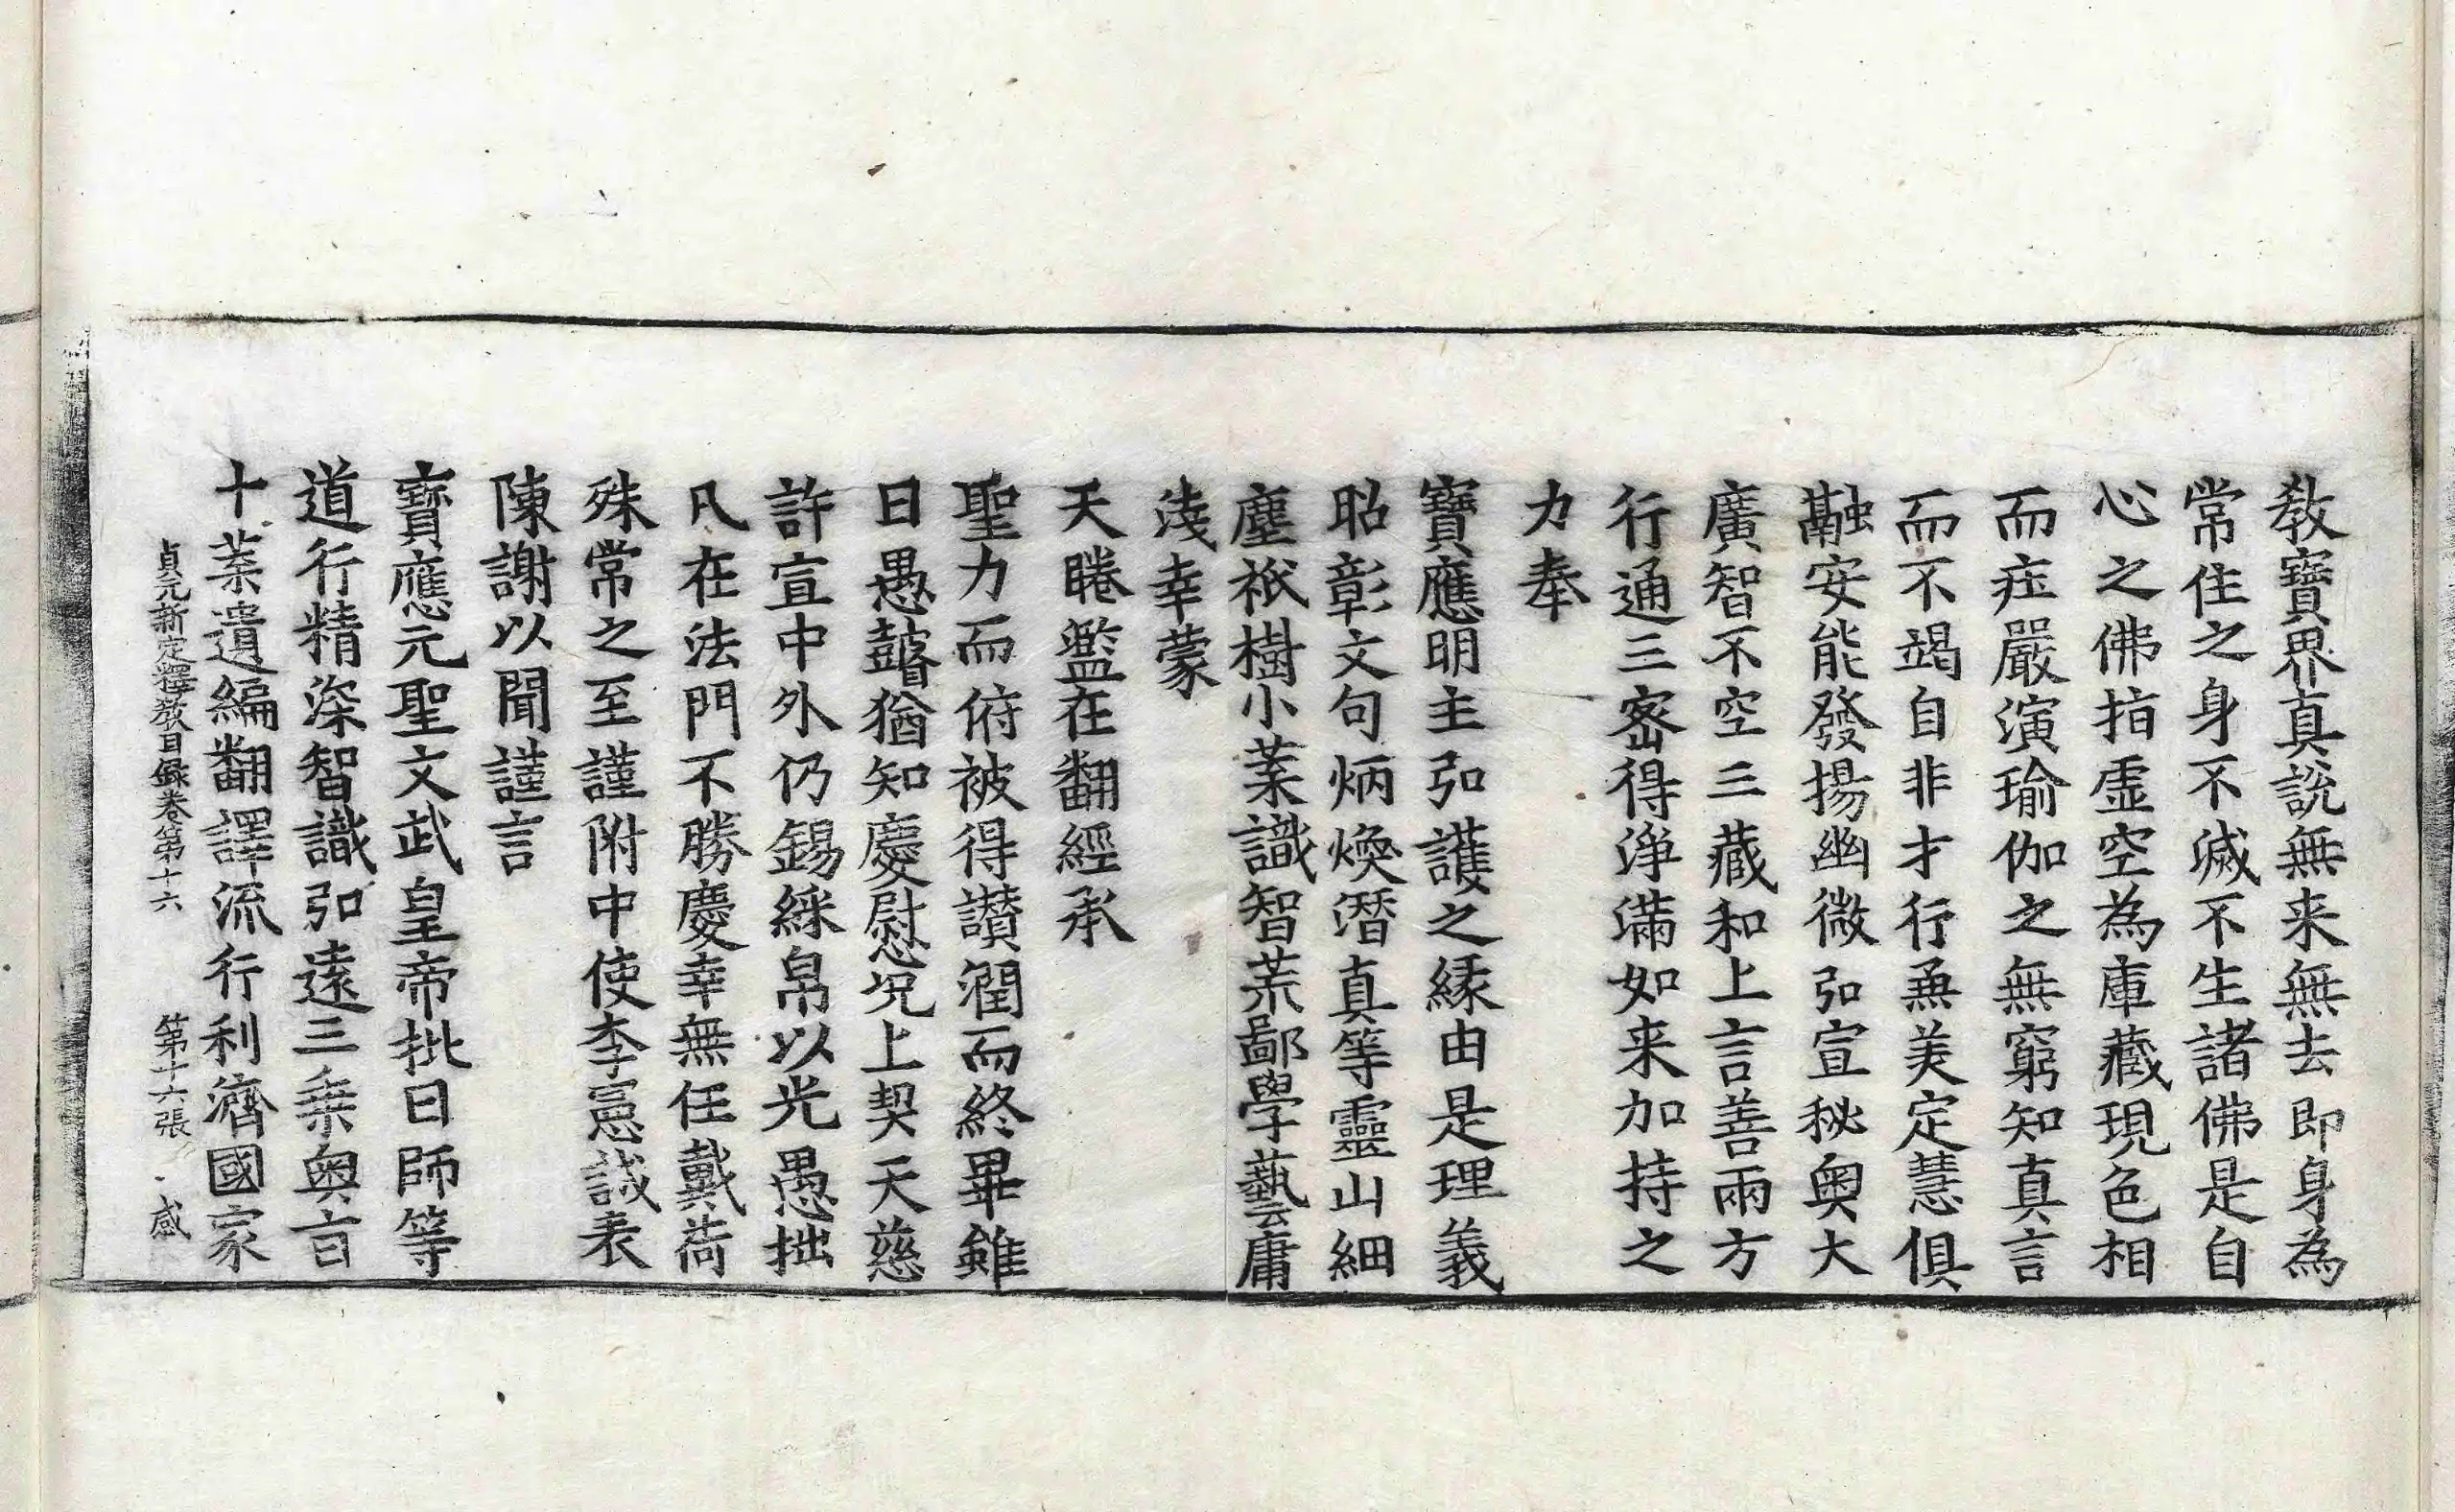 教寶界真說無来無去即身為
常住之身不滅不生諸佛是自
心之佛指虛空為庫藏現色相
而莊嚴演瑜伽之無窮知真言
而不竭自非才行兼美定慧俱
融安能發揚幽微弘宣秘奧大
廣智不空三藏和上言善兩方
行通三密得淨滿如来加持之
力奉
寶應明主弘護之緣由是理義
昭彰文句炳煥潛真等靈山細
塵祇樹小葉識智荒鄙學藝庸
淺幸蒙
天睠濫在翻經承
聖力而俯被得讚潤而終畢雖
日愚瞽猶知慶慰況上契天慈
許宣中外仍錫綵帛以光愚拙
凡在法門不勝慶幸無任戴荷
殊常之至謹附中使李憲誠表
陳謝以聞謹言
寶應元聖文武皇帝批曰師等
道行精深智識弘遠三乘奧旨
十葉遺編翻譯流行利濟國家
貞元新定釋教目錄卷第十六 第十六張 感